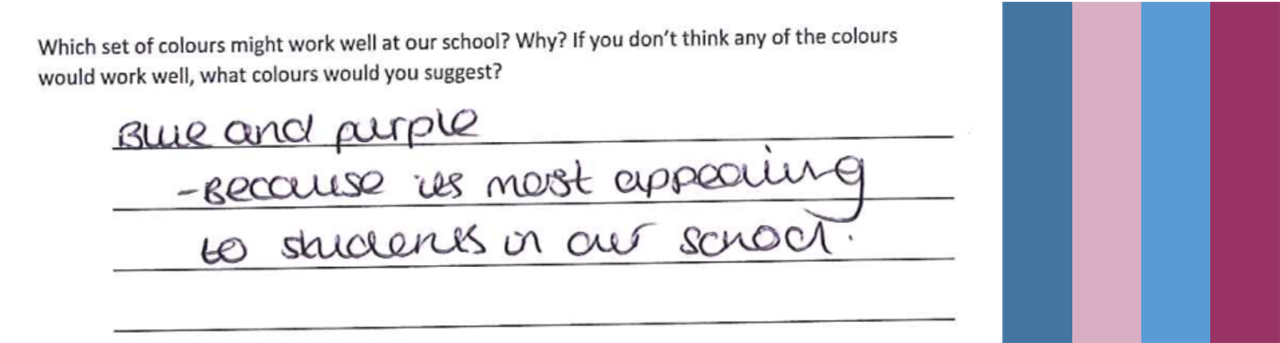 Which set of colours might work well at our school? Why? If you don't think any of the colours
would work well, what colours would you suggest?
Blue and purple
-Because its most appealing
to students in our school.